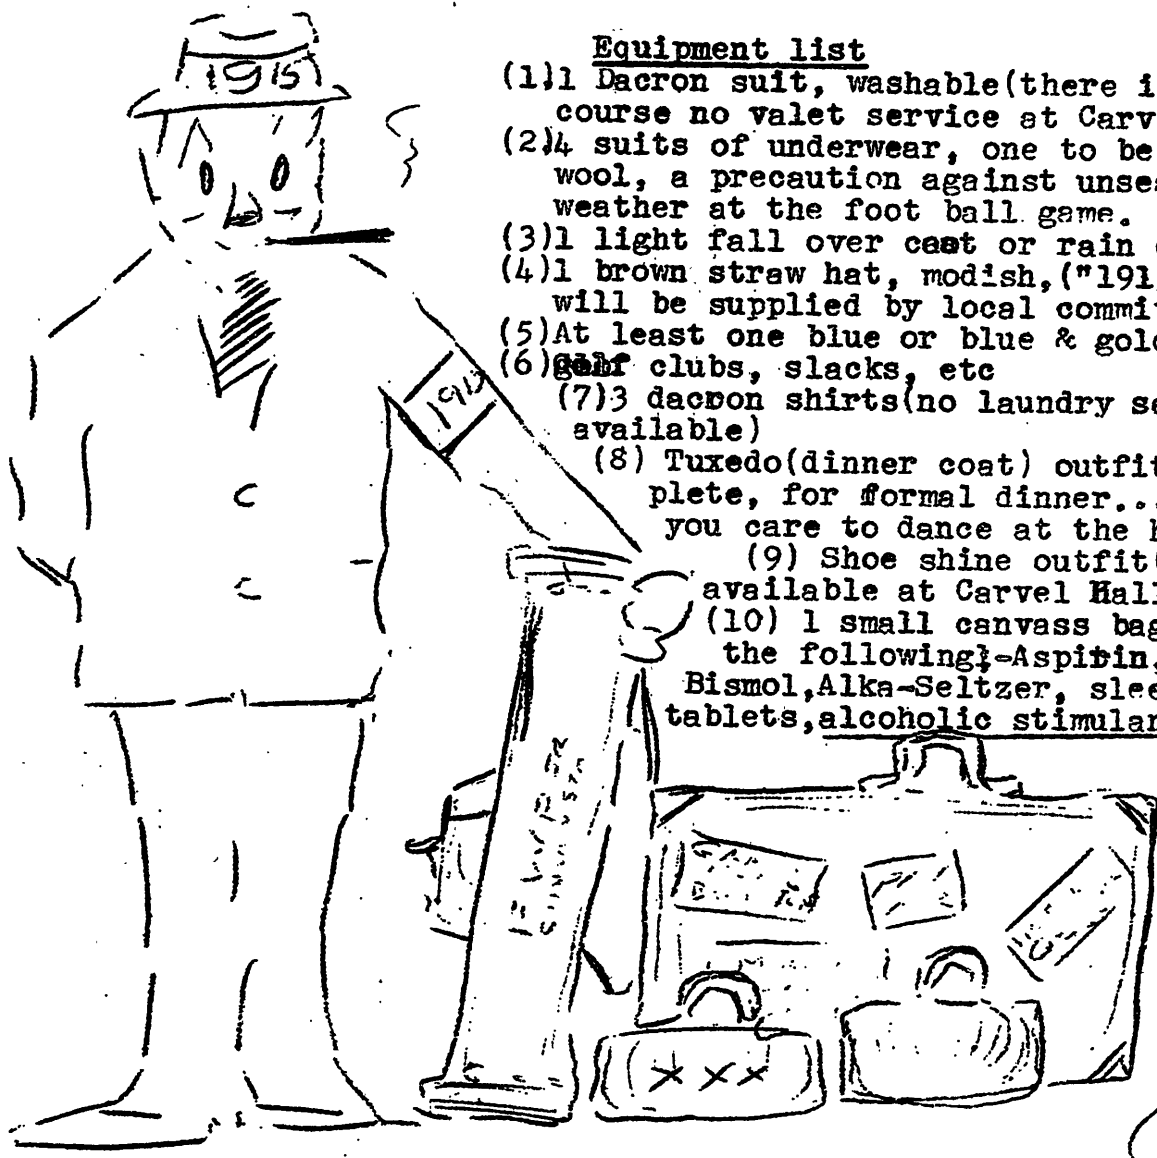 Equipment list
(1)1 Dacron suit, washable(there i
course no valet service at Carv
(2)4 suits of underwear, one to be
wool, a precaution against unse
weather at the foot ball game.
(3)1 light fall over coat or rain
(4)1 brown straw hat, modish,("191
will be supplied by local commi
(5)At least one blue or blue & gol
(6)golf clubs, slacks, etc
(7)3 dacron shirts(no laundry se
available)
(8) Tuxedo(dinner coat) outfit
plete, for formal dinner...
you care to dance at the h
(9) Shoe shine outfit(
available at Carvel Hall
(10) 1 small canvass bag
the following:-Aspirin,
Bismol,Alka-Seltzer, slee
tablets,alcoholic stimular
1915
191
XXX